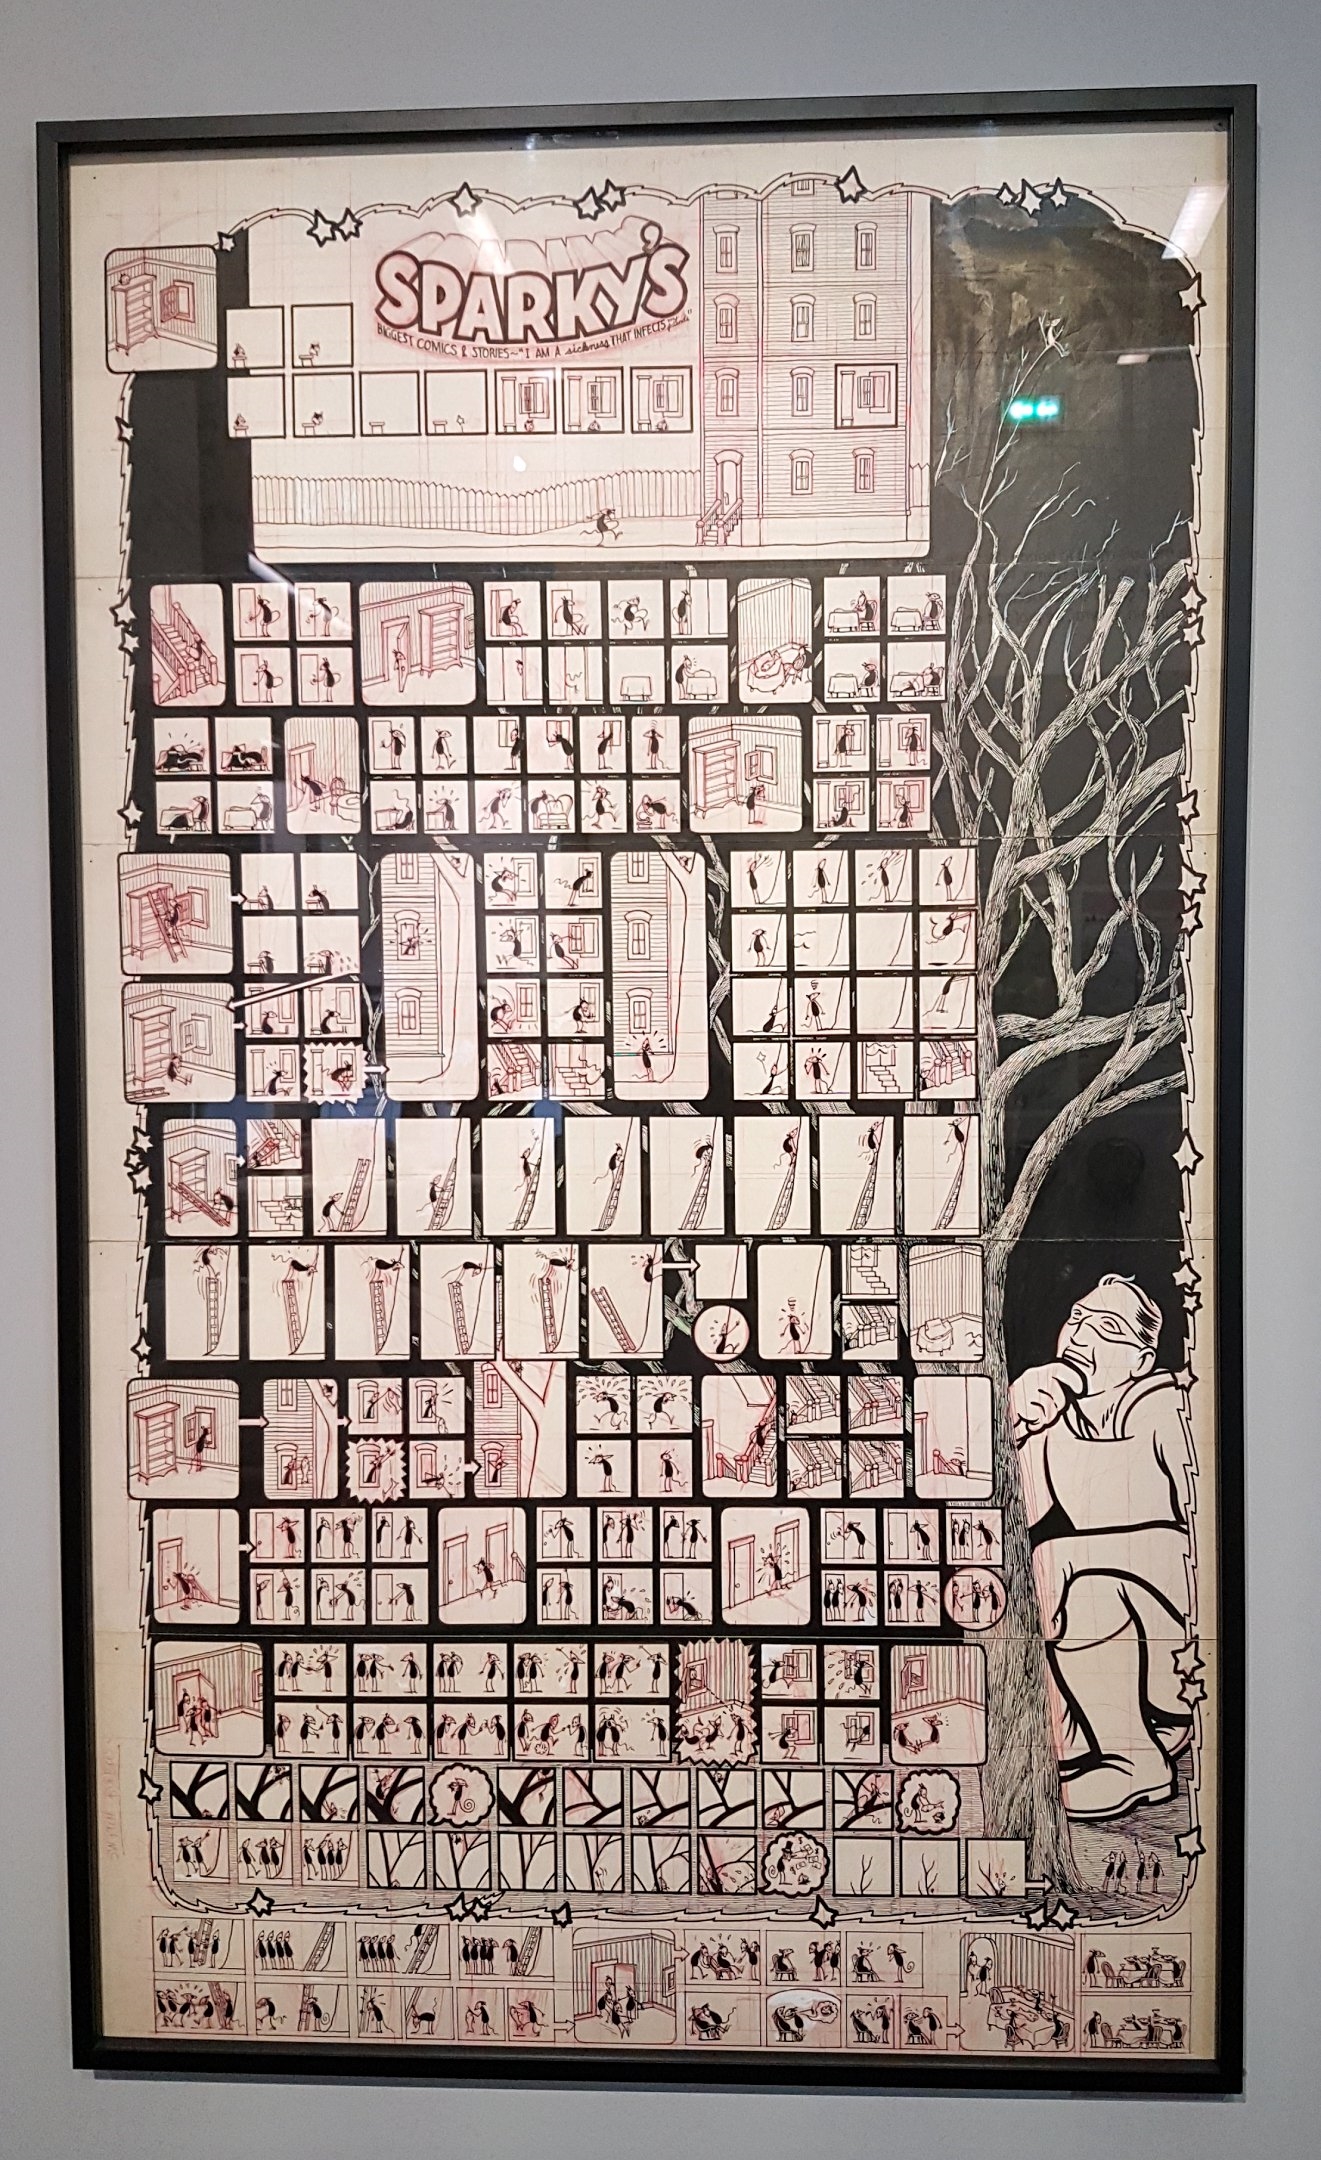 SPARKY'S
BIGGEST COMICS & STORIES~"I AM A sickness THAT INFECTS